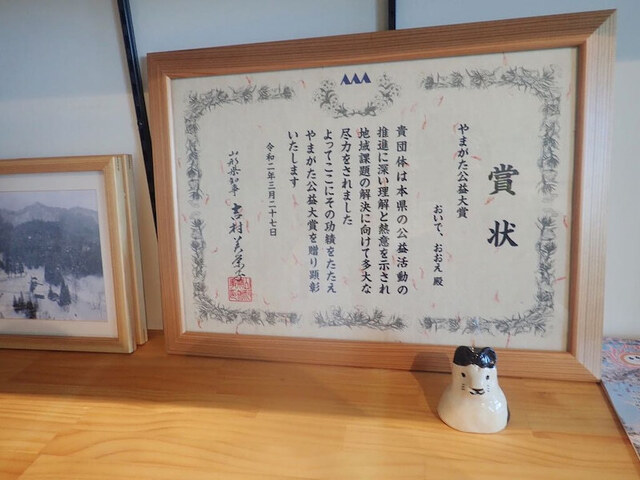 賞状
やまがた公益大賞
おいで、おおえ 殿
貴団体は本県の公益活動の
推進に深い理解と熱意を示され
地域課題の解決に向けて多大な
尽力をされました
よってここにその功績をたたえ
やまがた公益大賞を贈り顕彰
いたします
令和二年三月二十七日
山形県知事 吉村美栄子